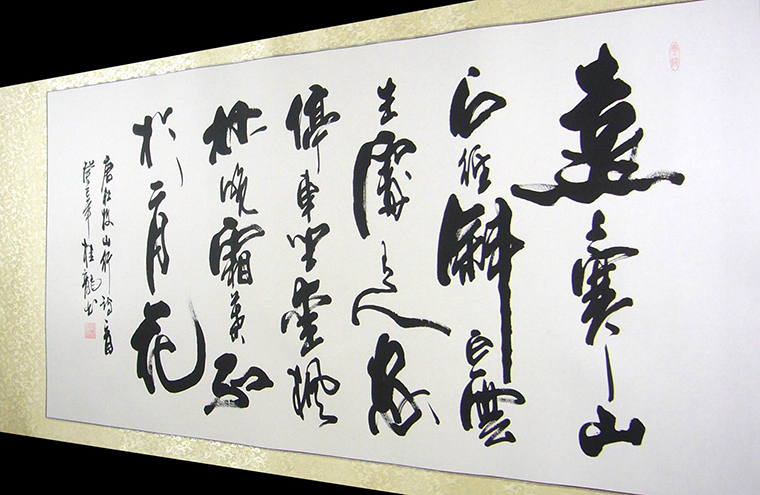 遠上寒山
石徑斜白雲
生處有人家
停車坐愛楓
林晚霜葉紅
於二月花
唐杜牧山行詩一首
癸巳年桂龍书